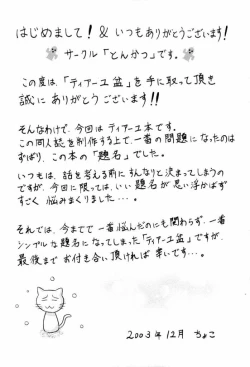 はじめまして！& いつもありがとうございます！
サークル「とんかつ」です。
この度は、「ティアーユ 盆」を手に取って頂き
誠に ありがとう ございます!!
そんなわけで、今回は ティアーユ本です。
この同人誌を制作する上で、一番の問題になったのは
ずばり、この本の「題名」でした。
いつもは、話を考える前に すんなりと 決まってしまうの
ですが、今回に限っては、いい 題名が 思い浮かばず
すごく 悩みまくりました・・・。
それでは、今までで 一番 悩んだのにも 関わらず、一番
シンプルな 題名に なってしまった「ティアーユ 盆」ですが、
最後まで お付き合い 頂ければ 幸いです…。
2003年 12月 ちょこ